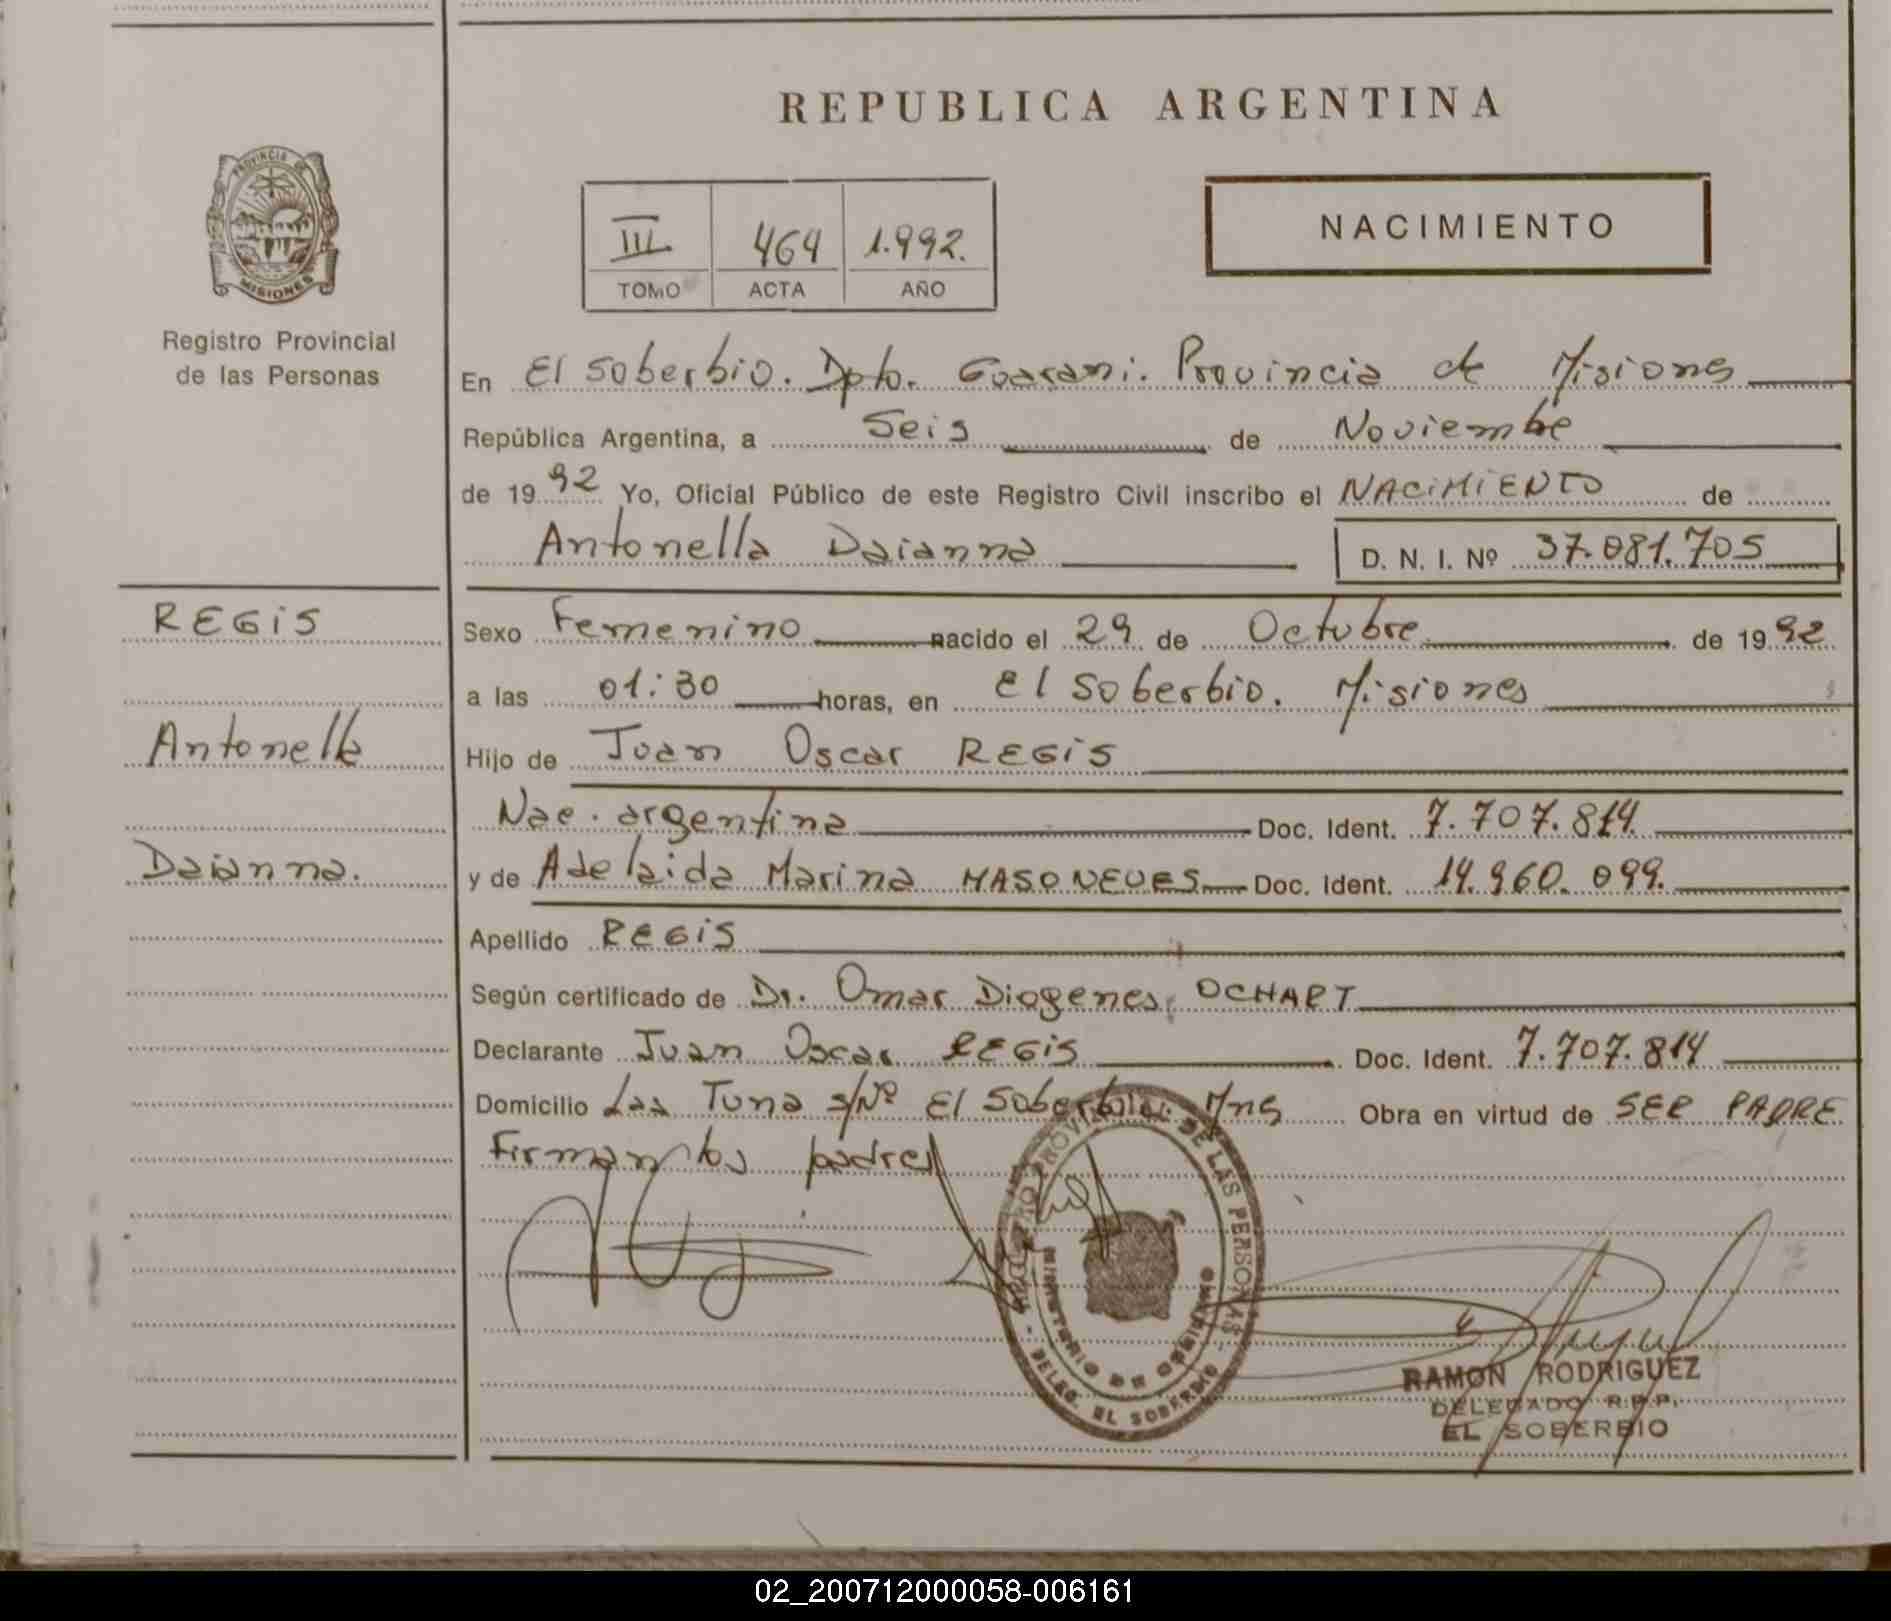 REPUBLICA ARGENTINA
PROVINCIA DE
MISIONES
Registro Provincial
de las Personas
III 464 1.992.
TOMO ACTA AÑO
NACIMIENTO
En El Soberbio. Dpto. Guarani. Provincia de Misiones
República Argentina, a Seis de Noviembre
de 1992 Yo, Oficial Público de este Registro Civil inscribo el NACIMIENTO de
Antonella Daianna D. N. I. Nº 37.081.705
REGIS
Antonella
Daianna.
Sexo Femenino nacido el 29 de Octubre de 1992
a las 01:30 horas, en El Soberbio. Misiones
Hijo de Juan Oscar REGIS
Nac. argentina Doc. Ident. 7.707.814
y de Adelaida Marina MASONEVES Doc. Ident. 14.960.099.
Apellido REGIS
Según certificado de Dr. Omar Diogenes OCHART
Declarante Juan Oscar REGIS Doc. Ident. 7.707.814
Domicilio Las Tuna s/Nº El Soberbio. Mns Obra en virtud de SER PADRE
Firman los padres
DE LAS PERSONAS
MINISTERIO DE GOBIERNO
DELEG. EL SOBERBIO
RAMON RODRIGUEZ
DELEGADO R.P.P.
EL SOBERBIO
02_200712000058-006161